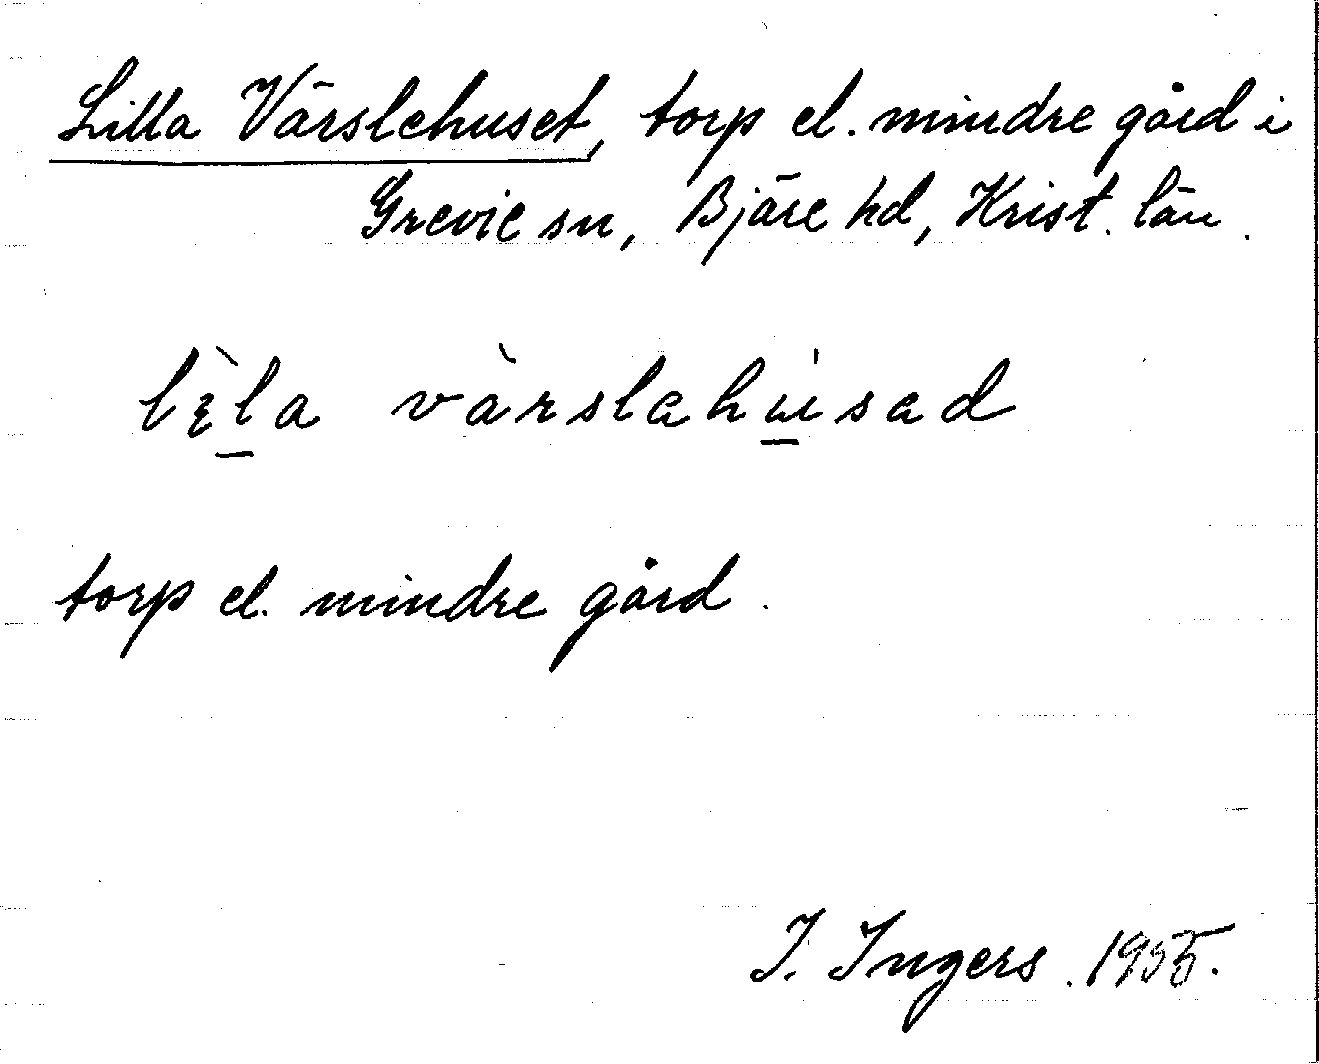 Lilla Värslehuset, torp el. mindre gård i
Grevie sn, Bjäre hd, Krist. län.
lila värslahusad
torp el. mindre gård.
I. Ingers. 1955.